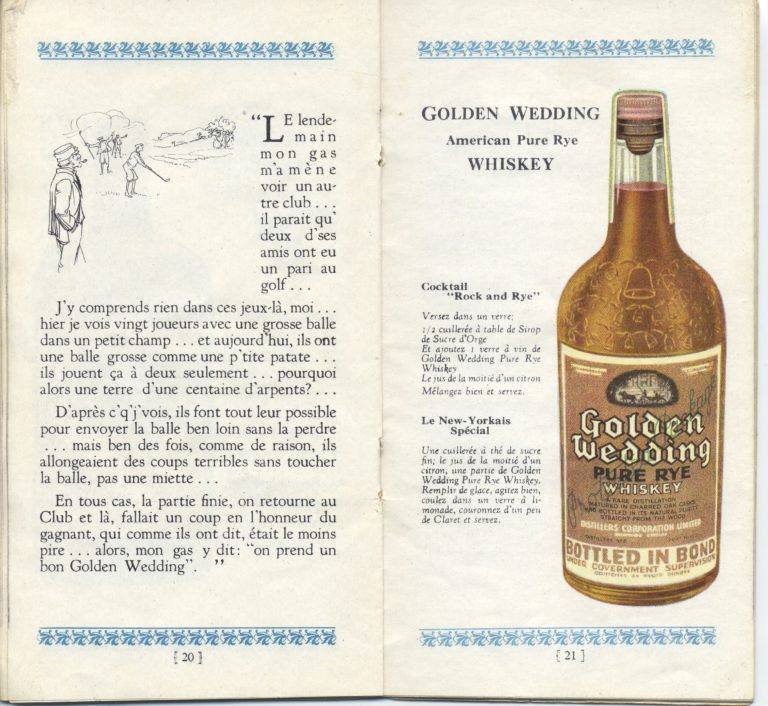 “LE lende-
main
mon gas
m'amène
voir un au-
tre club . . .
il parait qu'
deux d'ses
amis ont eu
un pari au
golf . . .
J'y comprends rien dans ces jeux-là, moi . . .
hier je vois vingt joueurs avec une grosse balle
dans un petit champ . . . et aujourd'hui, ils ont
une balle grosse comme une p'tite patate . . .
ils jouent ça à deux seulement . . . pourquoi
alors une terre d'une centaine d'arpents? . . .
D'après c'q'j'vois, ils font tout leur possible
pour envoyer la balle ben loin sans la perdre
. . . mais ben des fois, comme de raison, ils
allongeaient des coups terribles sans toucher
la balle, pas une miette . . .
En tous cas, la partie finie, on retourne au
Club et là, fallait un coup en l'honneur du
gagnant, qui comme ils ont dit, était le moins
pire . . . alors, mon gas y dit: “on prend un
bon Golden Wedding”. ”
[ 20 ]
GOLDEN WEDDING
American Pure Rye
WHISKEY
Cocktail
“Rock and Rye”
Versez dans un verre;
1/2 cuillerée à table de Sirop
de Sucre d'Orge
Et ajoutez 1 verre à vin de
Golden Wedding Pure Rye
Whiskey
Le jus de la moitié d'un citron
Mélangez bien et servez.
Le New-Yorkais
Spécial
Une cuillerée à thé de sucre
fin; le jus de la moitié d'un
citron, une partie de Golden
Wedding Pure Rye Whiskey.
Remplir de glace, agitez bien,
coulez dans un verre à li-
monade, couronnez d'un peu
de Claret et servez.
Golden
Wedding
PURE RYE
WHISKEY
A RARE DISTILLATION
MATURED IN CHARRED OAK CASKS
AND BOTTLED IN ITS NATURAL PURITY
STRAIGHT FROM THE WOOD
DISTILLERS CORPORATION LIMITED
BOTTLED IN BOND
UNDER GOVERNMENT SUPERVISION
[ 21 ]